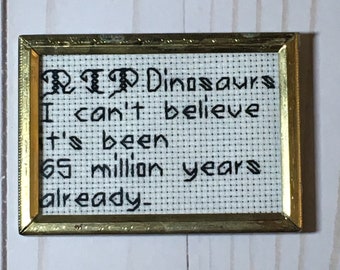 RIP Dinosaurs
I can't believe
it's been
65 million years
already...